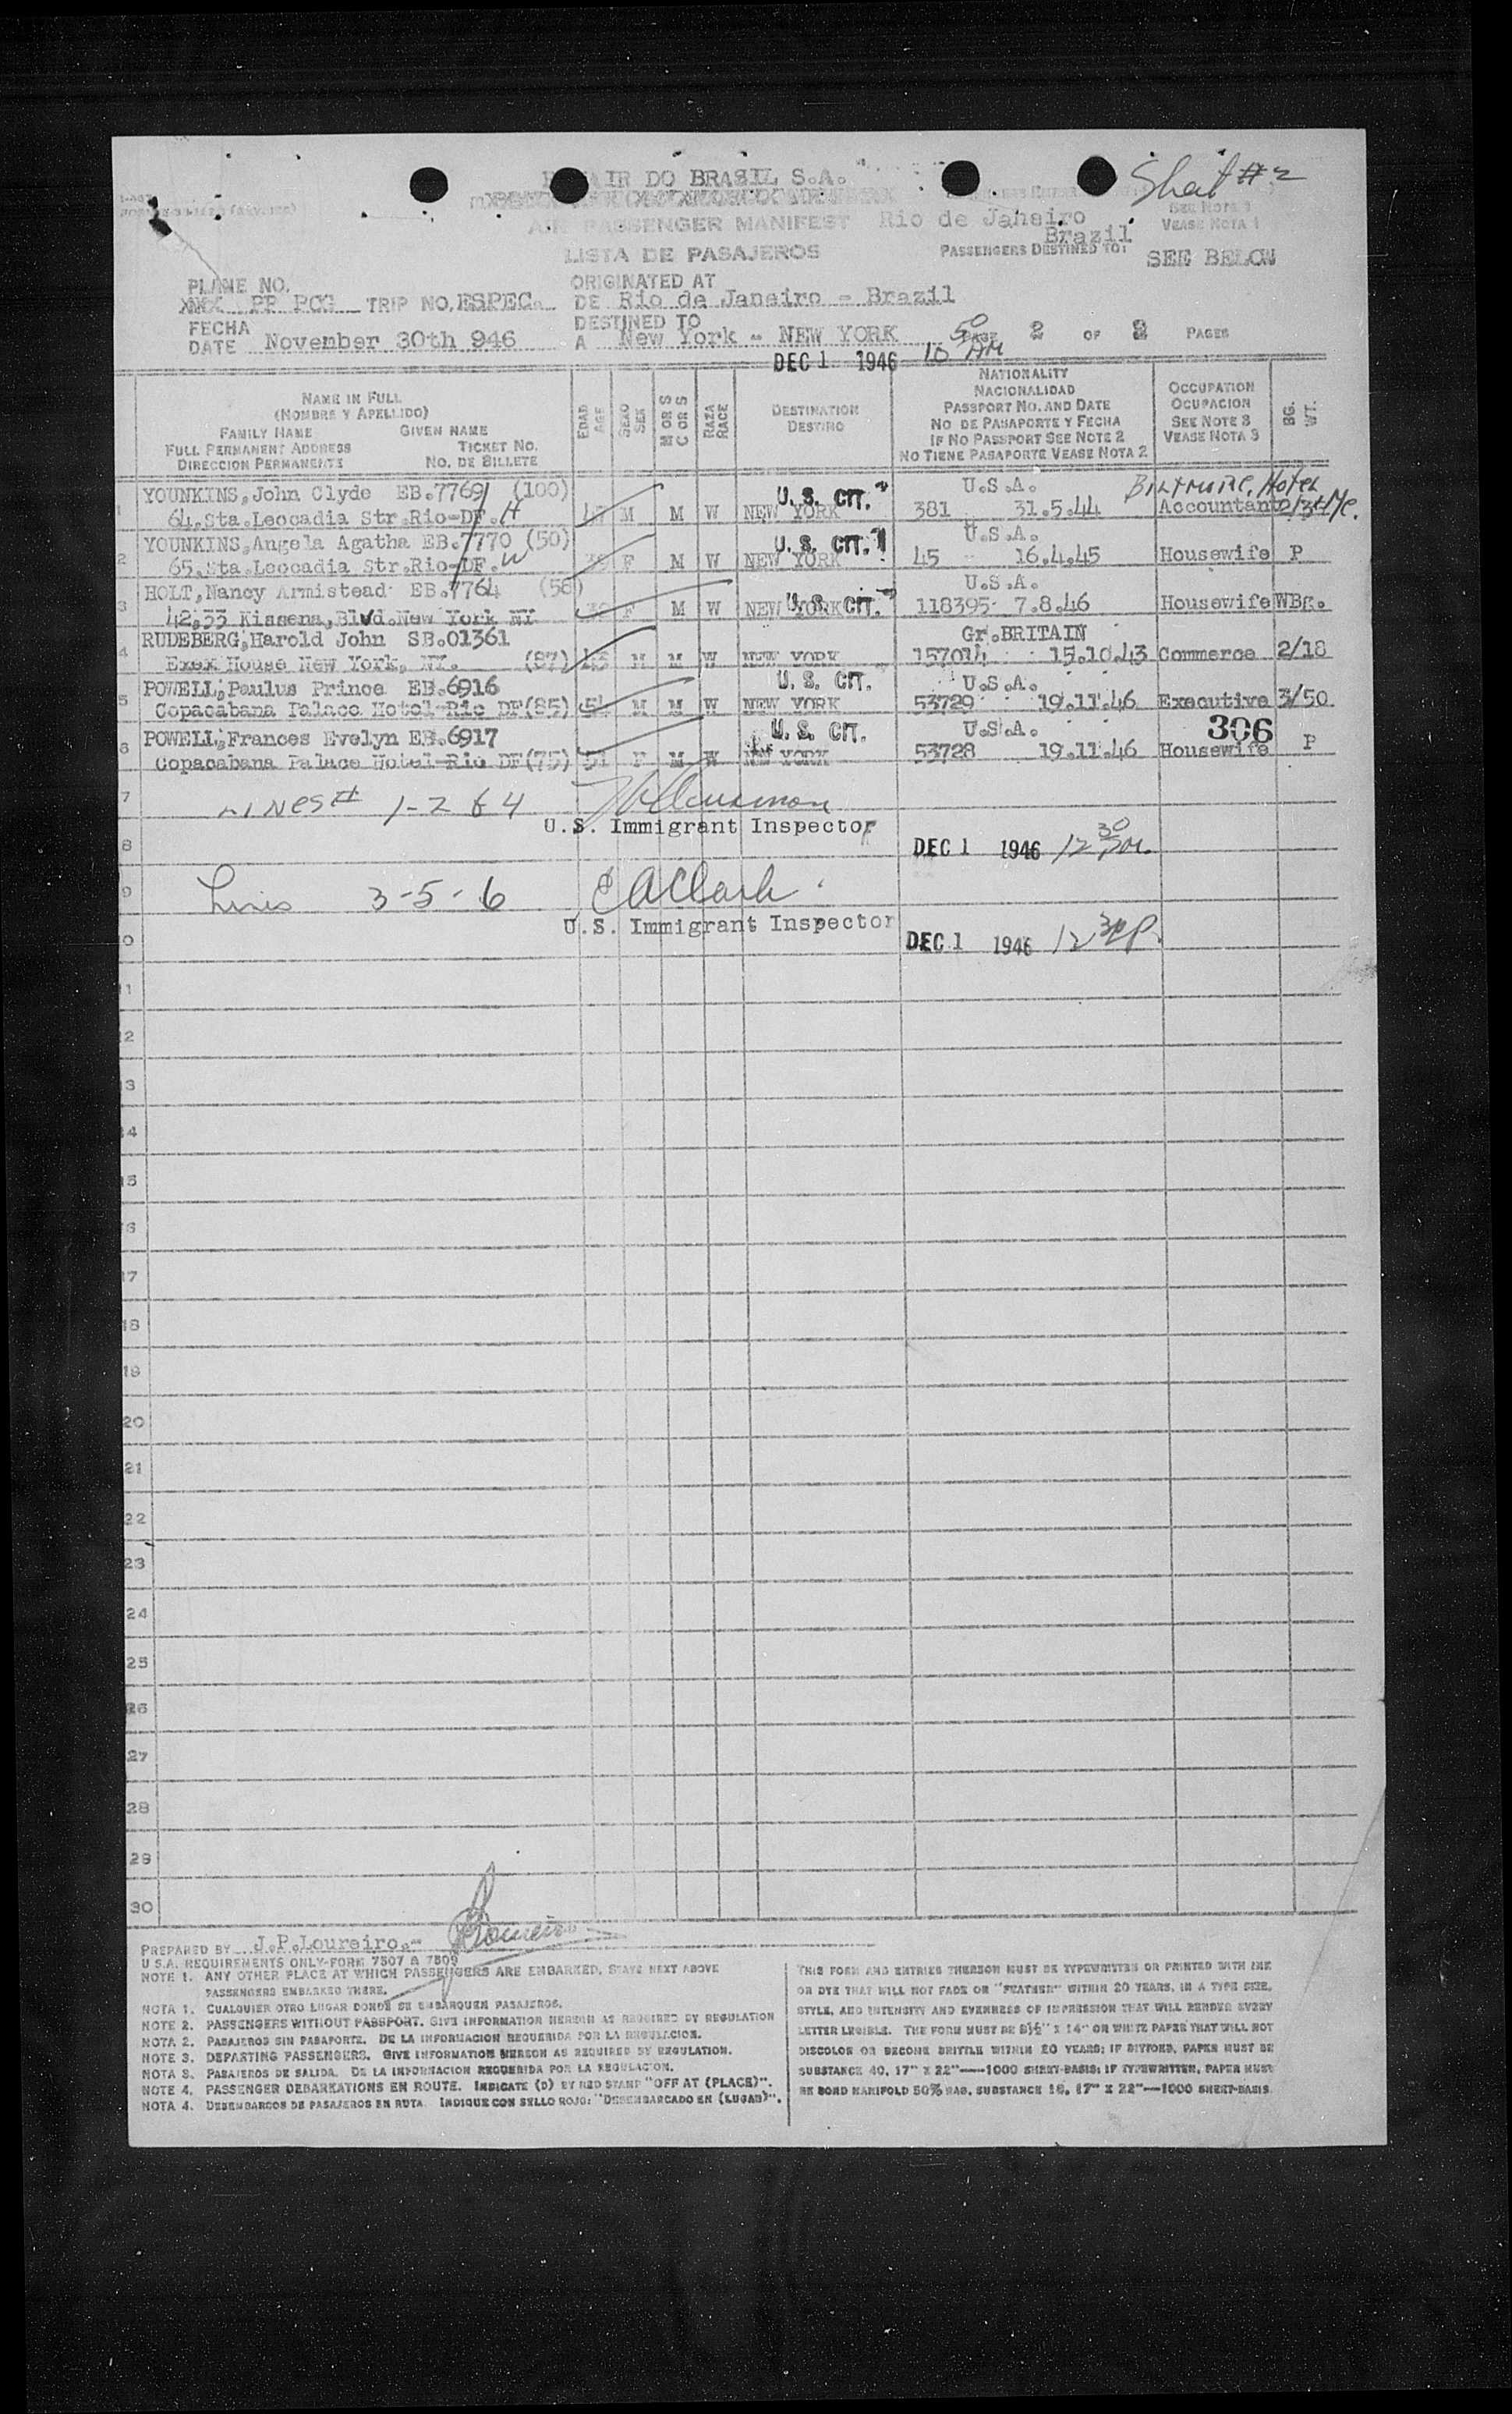 Sheet #2
AIR DO BRASIL S.A.
AIR PASSENGER MANIFEST Rio de Janeiro
Brazil
SEE NOTA 1
VEASE NOTA 1
LISTA DE PASAJEROS PASSENGERS DESTINED TO: SEE BELOW
PLANE NO. PP PCG TRIP NO. ESPEC.
ORIGINATED AT
DE Rio de Janeiro - Brazil
FECHA
DATE November 30th 946
DESTINED TO
A New York - NEW YORK 2 OF 2 PAGES
DEC 1 1946 10 50 AM
NAME IN FULL
(NOMBRE Y APELLIDO)
FAMILY NAME GIVEN NAME
FULL PERMANENT ADDRESS TICKET NO.
DIRECCION PERMANENTE NO. DE BILLETE
EDAD AGE
SEXO SEX
M OR S
C OR S
RAZA RACE
DESTINATION
DESTINO
NATIONALITY
NACIONALIDAD
PASSPORT NO. AND DATE
NO DE PASAPORTE Y FECHA
IF NO PASSPORT SEE NOTE 2
NO TIENE PASAPORTE VEASE NOTA 2
OCCUPATION
OCUPACION
SEE NOTE 3
VEASE NOTA 3
BG. WT.
1 YOUNKINS, John Clyde EB.7769 (100) U.S. CIT. U.S.A. Biltmore Hotel
64.Sta.Leocadia Str.Rio-DF. H M M W NEW YORK 381 31.5.44 Accountant
2 YOUNKINS, Angela Agatha EB.7770 (50) U.S. CIT. U.S.A.
65.Sta.Leocadia Str.Rio-DF. W F M W NEW YORK 45 16.4.45 Housewife P
3 HOLT, Nancy Armistead EB.7764 U.S. CIT. U.S.A.
42.33 Kissena, Blvd.New York NY F M W NEW YORK 118395 7.8.46 Housewife WBg.
4 RUDEBERG, Harold John SB.01361 Gr.BRITAIN
House New York, NY. (87) M M W NEW YORK 157014 15.10.43 Commerce 2/18
5 POWELL, Paulus Prince EB.6916 U.S. CIT. U.S.A.
Copacabana Palace Hotel-Rio DF(85) 54 M M W NEW YORK 53729 19.11.46 Executive 3/50
6 POWELL, Frances Evelyn EB.6917 U.S. CIT. U.S.A. 306
Copacabana Palace Hotel-Rio DF(75) 51 F M W NEW YORK 53728 19.11.46 Housewife P
7 LINES # 1-2 & 4
U.S. Immigrant Inspector
8 DEC 1 1946 12 30 PM.
9 Lines 3-5-6 CAClark
U.S. Immigrant Inspector
10 DEC 1 1946 12 30 P.
11
12
13
14
15
16
17
18
19
20
21
22
23
24
25
26
27
28
29
30
PREPARED BY J.P.Loureiro.- Loureiro
U S.A. REQUIREMENTS ONLY-FORM 7507 & 7509
NOTE 1. ANY OTHER PLACE AT WHICH PASSENGERS ARE EMBARKED, STATE NEXT ABOVE
PASSENGERS EMBARKED THERE.
NOTA 1. CUALQUIER OTRO LUGAR DONDE SE EMBARQUEN PASAJEROS.
NOTE 2. PASSENGERS WITHOUT PASSPORT. GIVE INFORMATION HEREIN AS REQUIRED BY REGULATION
NOTA 2. PASAJEROS SIN PASAPORTE. DE LA INFORMACION REQUERIDA POR LA REGULACION.
NOTE 3. DEPARTING PASSENGERS. GIVE INFORMATION HEREON AS REQUIRED BY REGULATION.
NOTA 3. PASAJEROS DE SALIDA. DE LA INFORMACION REQUERIDA POR LA REGULACION.
NOTE 4. PASSENGER DEBARKATIONS EN ROUTE. INDICATE (D) BY RED STAMP "OFF AT (PLACE)".
NOTA 4. DESEMBARCOS DE PASAJEROS EN RUTA. INDIQUE CON SELLO ROJO: "DESEMBARCADO EN (LUGAR)".
THIS FORM AND ENTRIES THEREON MUST BE TYPEWRITTEN OR PRINTED WITH INK
OR DYE THAT WILL NOT FADE OR "FEATHER" WITHIN 20 YEARS, IN A TYPE SIZE,
STYLE, AND INTENSITY AND EVENNESS OF IMPRESSION THAT WILL RENDER EVERY
LETTER LEGIBLE. THE FORM MUST BE 8½" X 14" OR WHITE PAPER THAT WILL NOT
DISCOLOR OR BECOME BRITTLE WITHIN 20 YEARS; IF DITTOED, PAPER MUST BE
SUBSTANCE 40, 17" X 22"—1000 SHEET-BASIS; IF TYPEWRITTEN, PAPER MUST
BE BOND MANIFOLD 50% RAG, SUBSTANCE 16, 17" X 22"—1000 SHEET-BASIS.